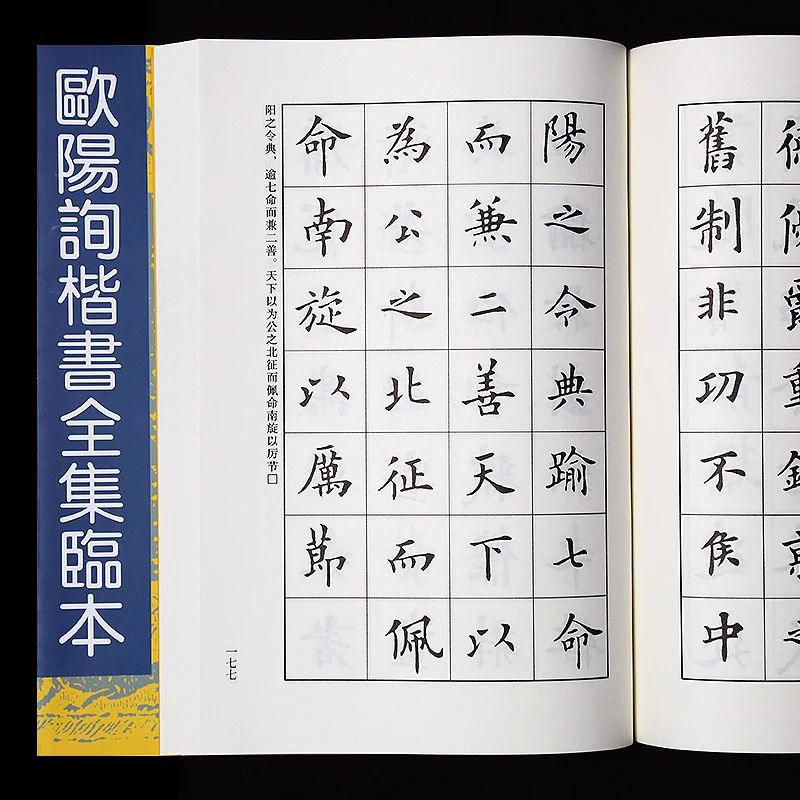 歐陽詢楷書全集臨本
舊制非㓛不侯中
陽之令典踰七命
而兼二善天下以
為公之北征而佩
命南旋以厲節
阳之令典、逾七命而兼二善。天下以为公之北征而佩命南旋以厉节□
一七七